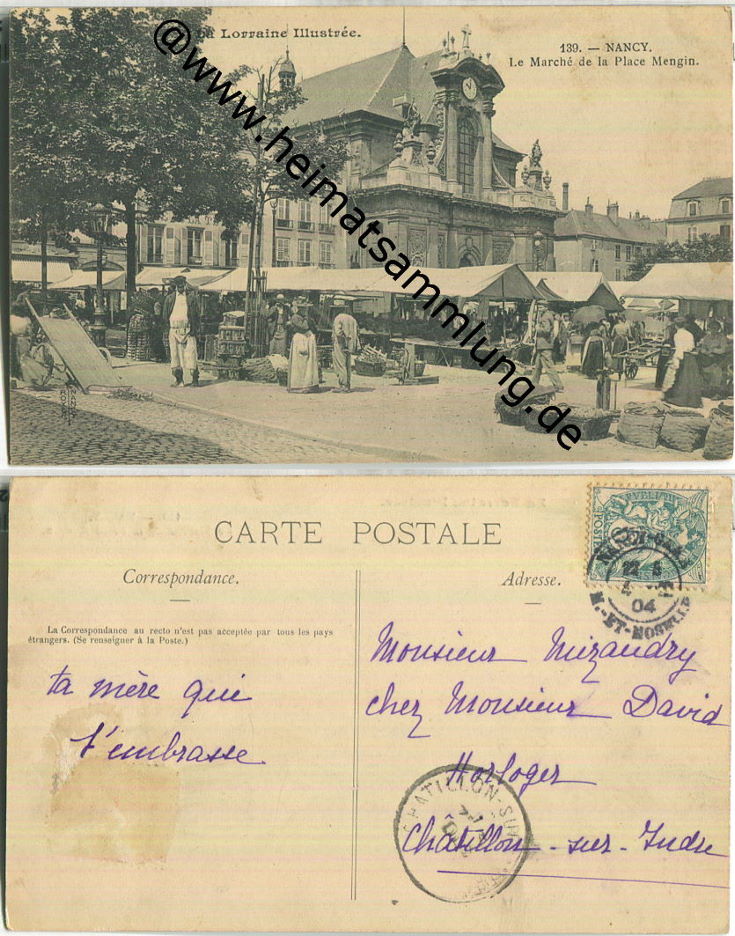 La Lorraine Illustrée.
139. — NANCY.
Le Marché de la Place Mengin.
@www.heimatsammlung.de
CARTE POSTALE
Correspondance.
Adresse.
La Correspondance au recto n'est pas acceptée par tous les pays
étrangers. (Se renseigner à la Poste.)
ta mère qui
t'embrasse
Monsieur Mizandry
chez Monsieur David
Horloger
Châtillon-sur-Indre
04
M.-ET-MOSELLE
CHATILLON-SUR